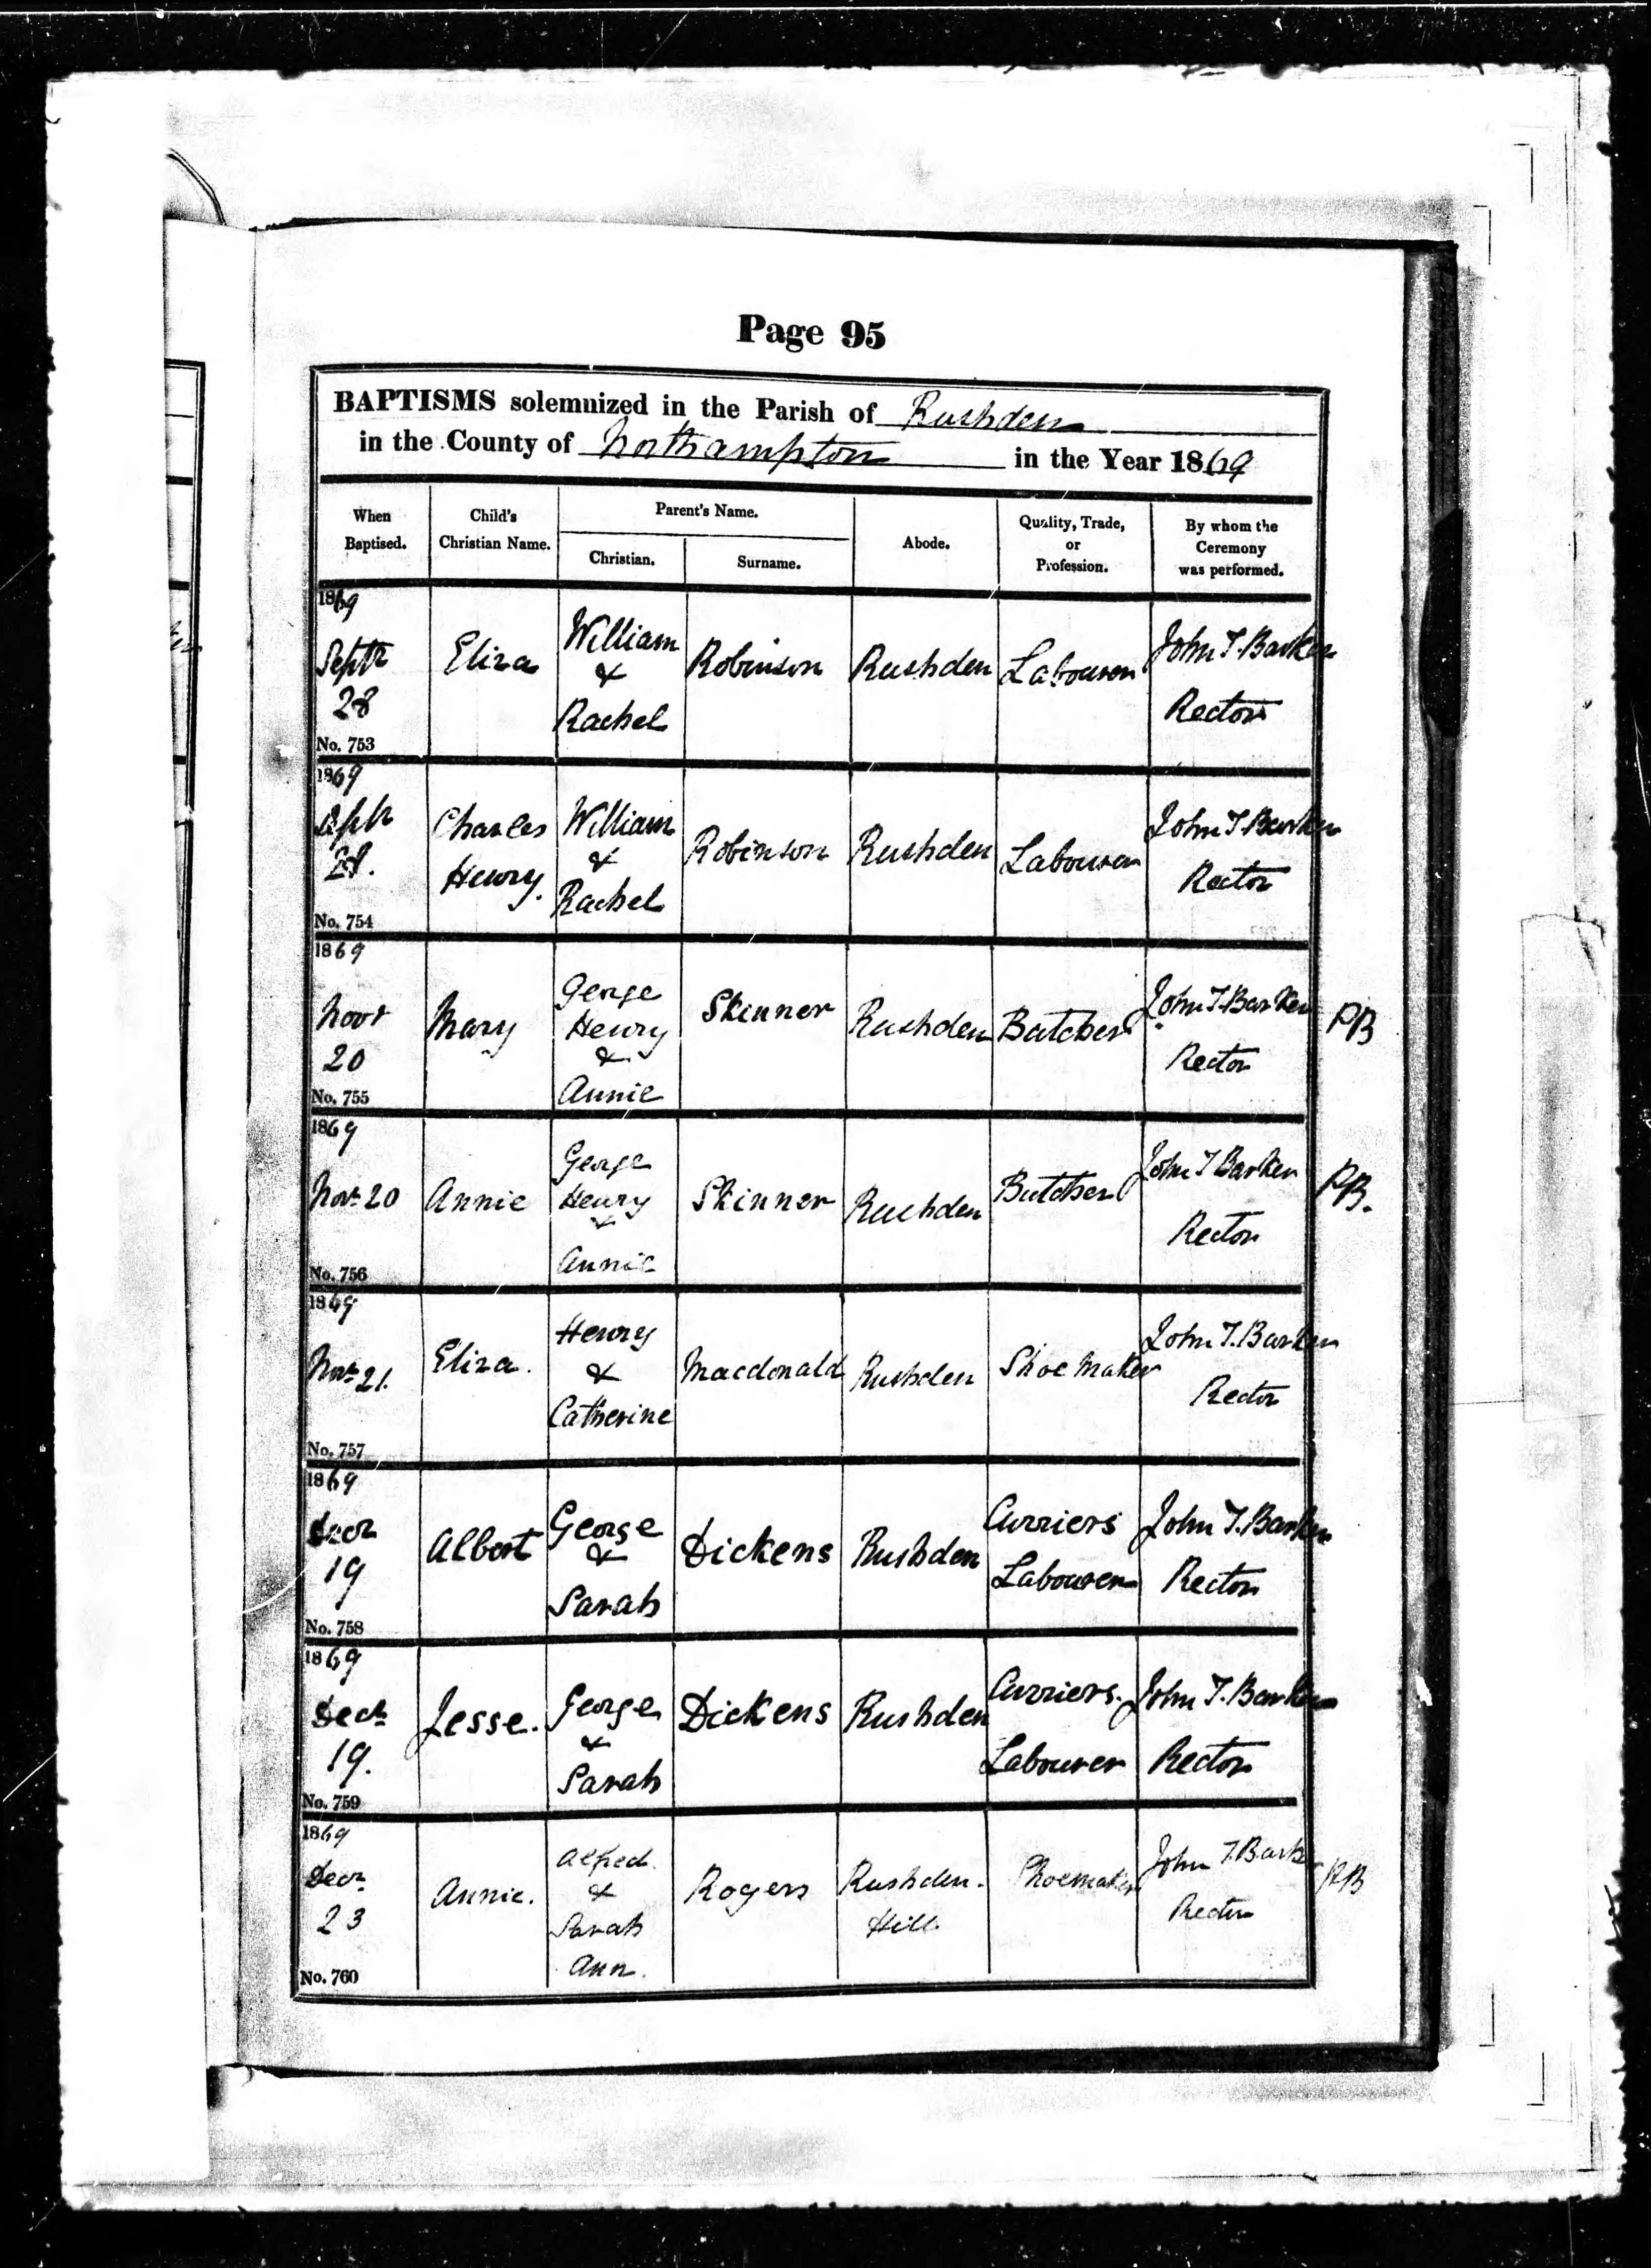 Page 95
BAPTISMS solemnized in the Parish of Rushden
in the County of Northampton in the Year 1869
When Baptised.
Child's Christian Name.
Parent's Name.
Christian.
Surname.
Abode.
Quality, Trade, or Profession.
By whom the Ceremony was performed.
1869
Septr 28
No. 753
Eliza
William & Rachel
Robinson
Rushden
Labourer
John T. Barker Rector
1869
Septr 28.
No. 754
Charles Henry.
William & Rachel
Robinson
Rushden
Labourer
John T Barker Rector
1869
Novr 20
No. 755
Mary
George Henry & Annie
Skinner
Rushden
Butcher
John T. Barker Rector
PB
1869
Novr 20
No. 756
Annie
George Henry & Annie
Skinner
Rushden
Butcher
John T Barker Rector
PB.
1869
Novr 21.
No. 757
Eliza.
Henry & Catherine
Macdonald
Rushden
Shoe Maker
John T. Barker Rector
1869
Decr 19
No. 758
Albert
George & Sarah
Dickens
Rushden
Curriers Labourer
John T. Barker Rector
1869
Decr 19.
No. 759
Jesse.
George & Sarah
Dickens
Rushden
Curriers. Labourer
John T. Barker Rector
1869
Decr 23
No. 760
Annie.
Alfred. & Sarah Ann.
Rogers
Rushden. Hill.
Shoemaker
John T. Bark Rector
PB